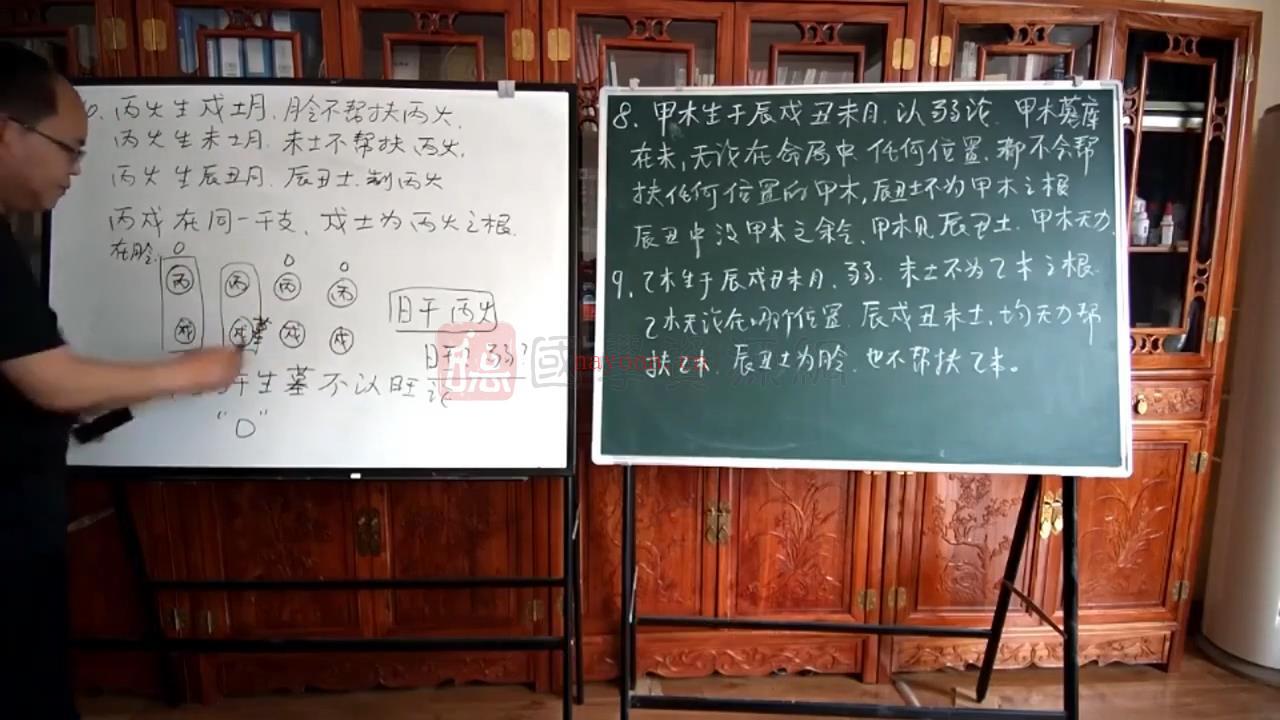 6. 丙火生戌土月、脸不帮扶丙火.
丙火生未土月. 未土不帮扶丙火.
丙火生辰丑月. 辰丑土. 制丙火
丙戌在同一干支、戌土为丙火之根.
在脸. 0 0 0
丙 丙 丙 丙
戌 戌 墓 戌 戌
日干丙火
日干: 弱?
干生墓不以旺论
"0"
8. 甲木生于辰戌丑未月. 以弱论. 甲木墓库
在未, 无论在命局中任何位置. 都不会帮
扶任何位置的甲木, 辰丑土不为甲木之根
辰丑中没甲木之余气. 甲木见辰丑土. 甲木无力.
9. 乙木生于辰戌丑未月. 弱. 未土不为乙木之根.
乙木无论在哪个位置. 辰戌丑未土. 均无力帮
扶乙木. 辰丑土为脸. 也不帮扶乙木。
nayoon.cn